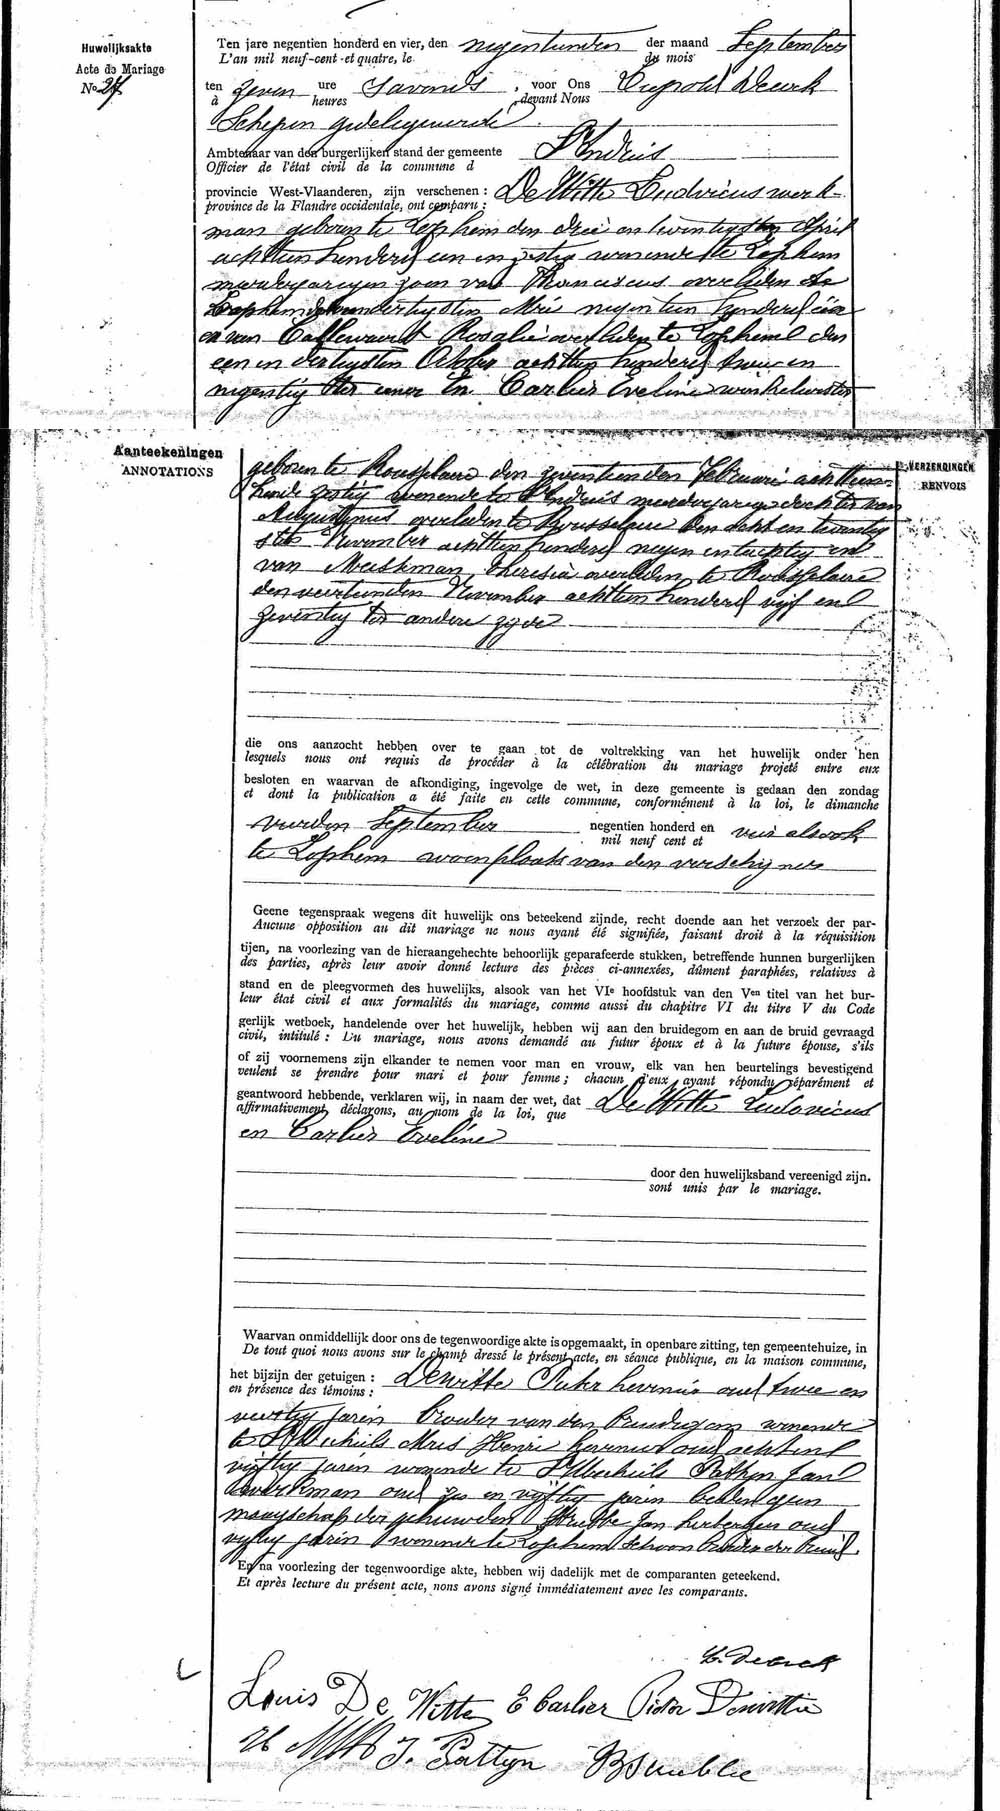 Huwelijksakte
Acte de Mariage
No 27
Ten jare negentien honderd en vier, den negentienden der maand September
L'an mil neuf-cent et quatre, le du mois
ten zeven ure savonds, voor Ons Leopold
à heures devant Nous
Schepen gedelegeerde
Ambtenaar van den burgerlijken stand der gemeente St Andries
Officier de l'état civil de la commune d
provincie West-Vlaanderen, zijn verschenen : De Witte Ludovicus werk-
province de la Flandre occidentale, ont comparu :
man geboren te Lophem den drie en twintigsten April
achttien honderd een en zestig wonende te Lophem
meerderjarigen zoon van Franciscus overleden te
Lophem den dertigsten Mei negentien honderd
en van Callewaert Rosalie overleden te Lophem den
een en dertigsten October achttien honderd twee en
negentig ter eener En Carlier Eveline winkelierster
Aanteekeningen
ANNOTATIONS
VERZENDINGEN
RENVOIS
geboren te Rousselaere den zeventienden Februari achttien-
honderd zestig wonende te St Andries meerderjarige dochter van
Augustinus overleden te Rousselaere den acht en twintig
sten November achttien honderd negen en tachtig en
van Meeskman Theresia overleden te Rousselaere
den veertienden November achttien honderd vijf en
zeventig ter andere zijde
die ons aanzocht hebben over te gaan tot de voltrekking van het huwelijk onder hen
lesquels nous ont requis de procéder à la célébration du mariage projeté entre eux
besloten en waarvan de afkondiging, ingevolge de wet, in deze gemeente is gedaan den zondag
et dont la publication a été faite en cette commune, conformément à la loi, le dimanche
vierden September negentien honderd en vier alsook
mil neuf cent et
te Lophem woonplaats van den verschijner
Geene tegenspraak wegens dit huwelijk ons beteekend zijnde, recht doende aan het verzoek der par-
Aucune opposition au dit mariage ne nous ayant été signifiée, faisant droit à la réquisition
tijen, na voorlezing van de hieraangehechte behoorlijk geparafeerde stukken, betreffende hunnen burgerlijken
des parties, après leur avoir donné lecture des pièces ci-annexées, dûment paraphées, relatives à
stand en de pleegvormen des huwelijks, alsook van het VIe hoofdstuk van den Ven titel van het bur-
leur état civil et aux formalités du mariage, comme aussi du chapitre VI du titre V du Code
gerlijk wetboek, handelende over het huwelijk, hebben wij aan den bruidegom en aan de bruid gevraagd
civil, intitulé : Du mariage, nous avons demandé au futur époux et à la future épouse, s'ils
of zij voornemens zijn elkander te nemen voor man en vrouw, elk van hen beurtelings bevestigend
veulent se prendre pour mari et pour femme ; chacun d'eux ayant répondu séparément et
geantwoord hebbende, verklaren wij, in naam der wet, dat De Witte Ludovicus
affirmativement, déclarons, au nom de la loi, que
en Carlier Eveline
door den huwelijksband vereenigd zijn.
sont unis par le mariage.
Waarvan onmiddellijk door ons de tegenwoordige akte is opgemaakt, in openbare zitting, ten gemeentehuize, in
De tout quoi nous avons sur le champ dressé le présent acte, en séance publique, en la maison commune,
het bijzijn der getuigen : Dewitte Pieter hovenier oud twee en
en présence des témoins :
veertig jaren broeder van den bruidegom wonende
te St Michiels Henri hovenier oud acht en
vijftig jaren wonende te St Michiels Pattyn Jan
werkman oud zes en vijftig jaren beiden geen
maagschap der gehuwden Jan herbergier oud
vijftig jaren wonende te Lophem schoonbroeder der bruid.
En na voorlezing der tegenwoordige akte, hebben wij dadelijk met de comparanten geteekend.
Et après lecture du présent acte, nons avons signé immédiatement avec les comparants.
Louis De Witte E Carlier Pieter Dewitte
J. Pattyn